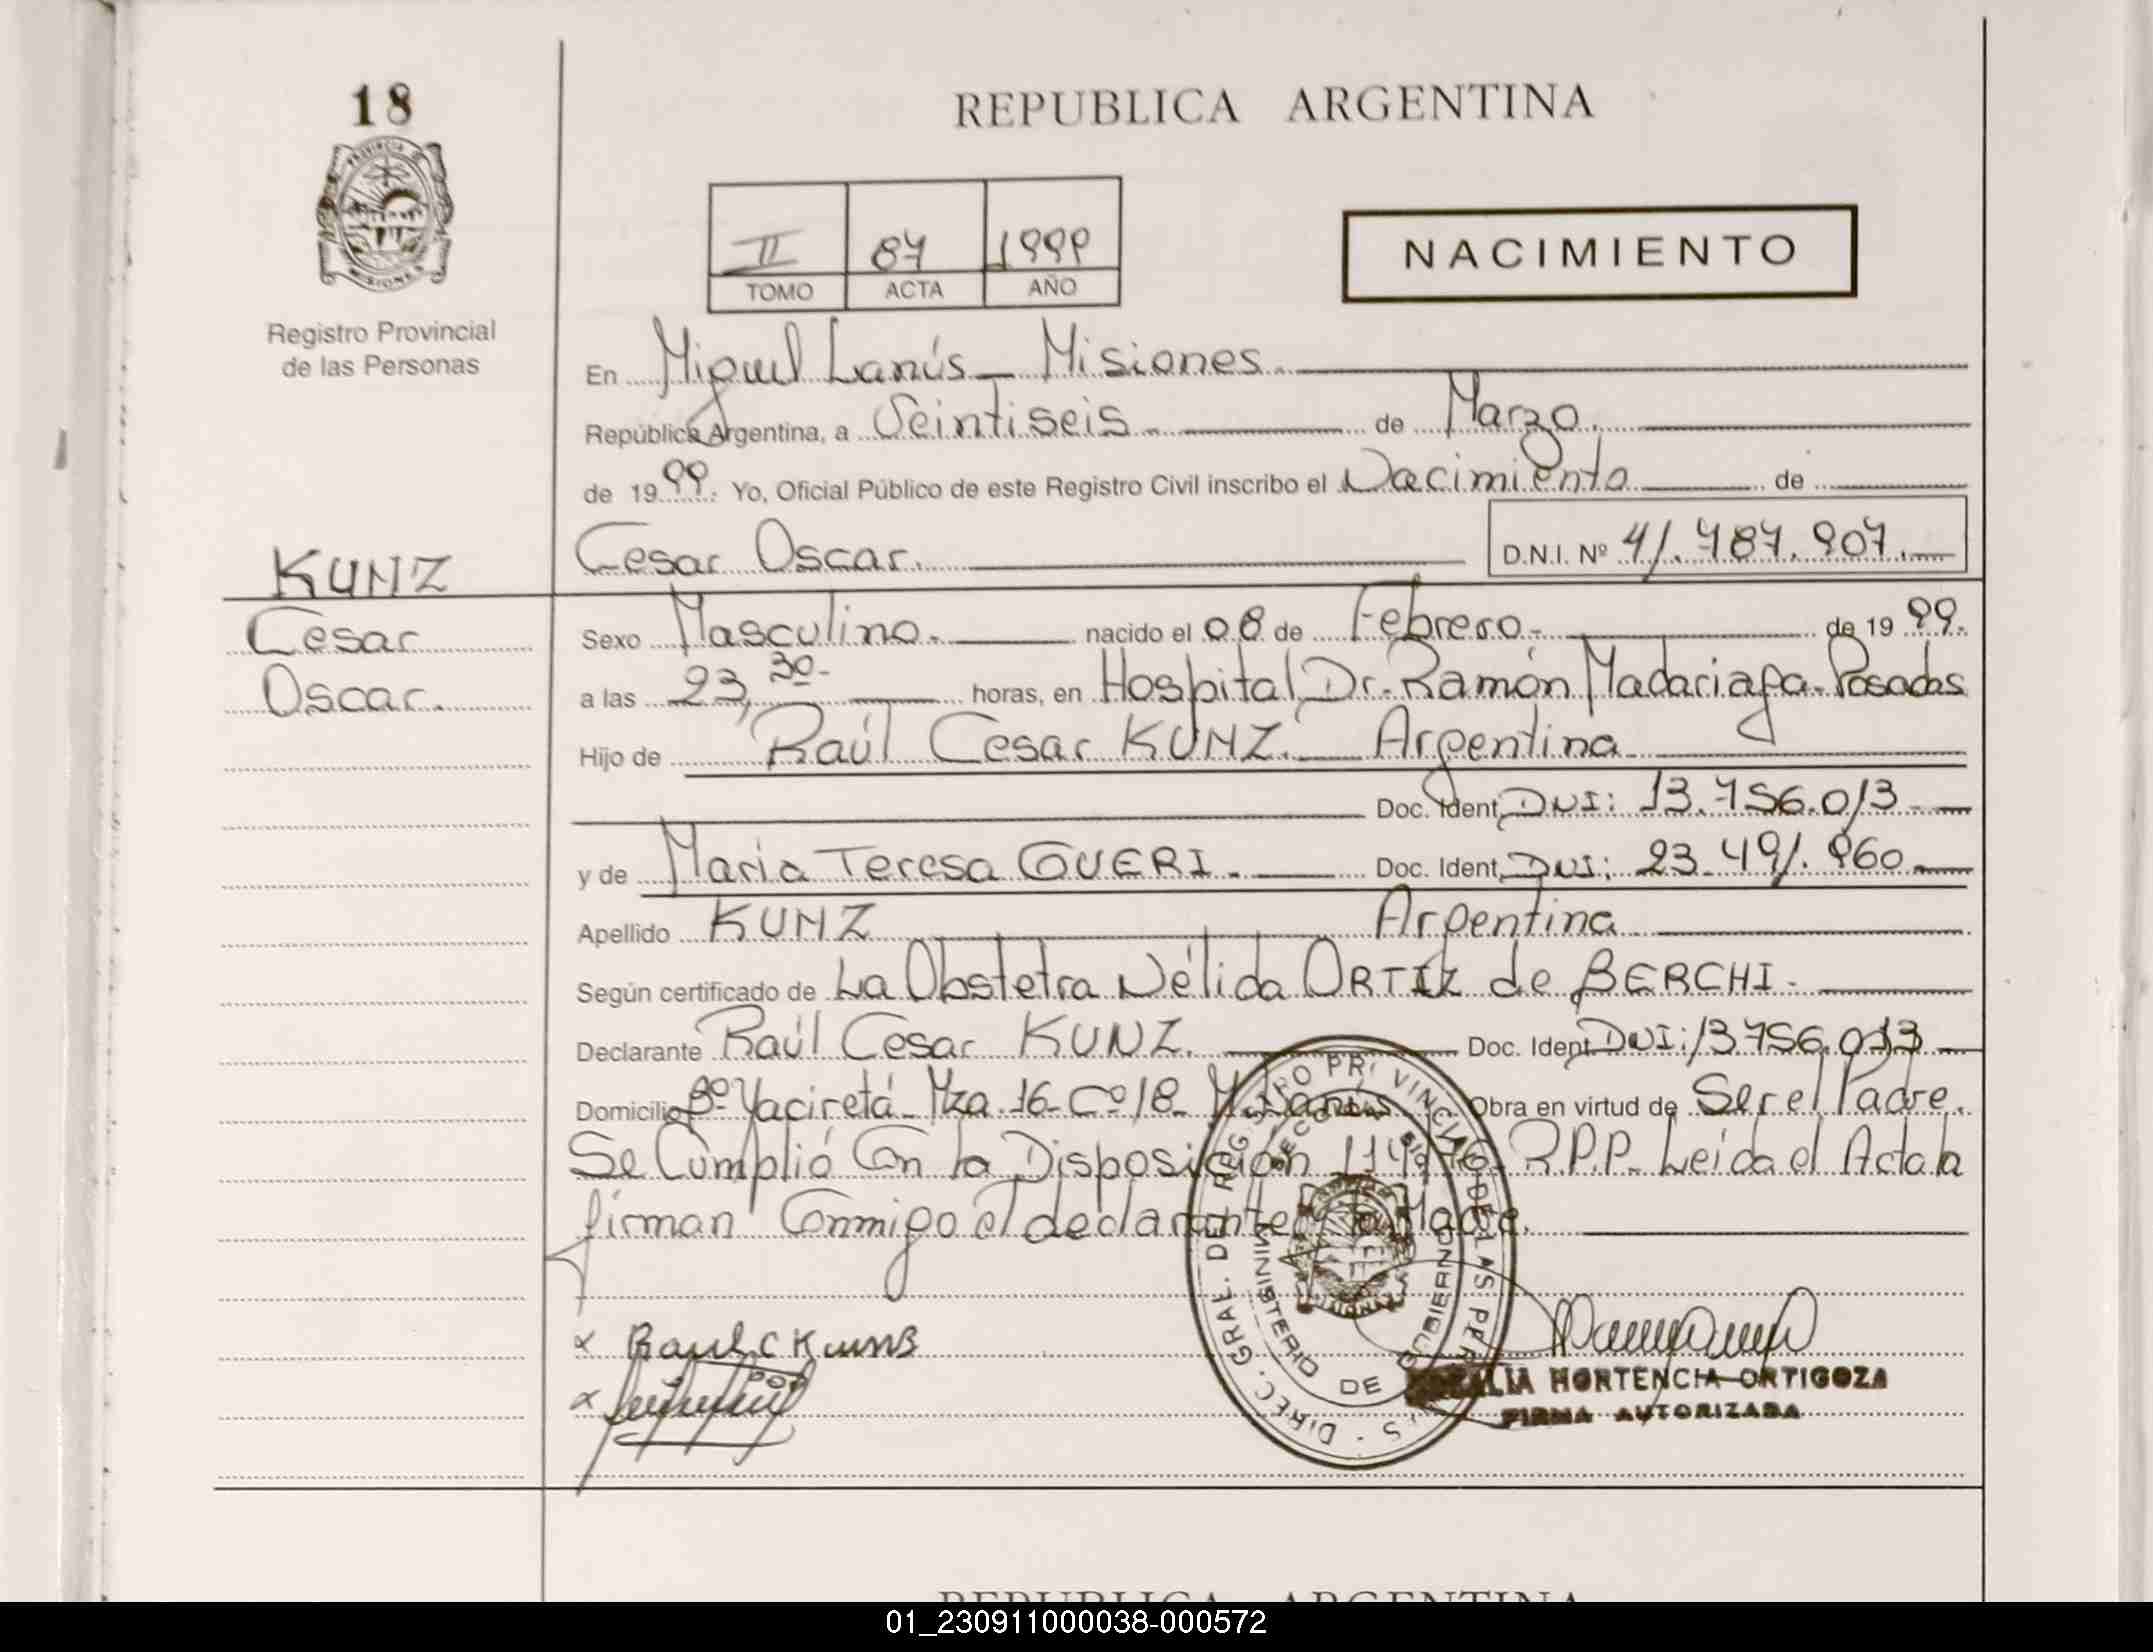 18
REPUBLICA ARGENTINA
II 87 1999
TOMO ACTA AÑO
NACIMIENTO
PROVINCIA DE MISIONES
Registro Provincial
de las Personas
En Miguel Lanús - Misiones.
República Argentina, a Veintiseis - de Marzo.
de 1999. Yo, Oficial Público de este Registro Civil inscribo el Nacimiento de
Cesar Oscar. D.N.I. Nº 41.787.907.
KUNZ
Cesar
Oscar.
Sexo Masculino. nacido el 08 de Febrero. de 1999.
a las 23,30- horas, en Hospital Dr. Ramón Madariaga. Posadas
Hijo de Raúl Cesar KUNZ. Argentina
Doc. Ident. DNI: 13.756.013
y de Maria Teresa GUERI. Doc. Ident. DNI: 23.491.960
Apellido KUNZ Argentina
Según certificado de La Obstetra Nélida ORTIZ de BERCHI.
Declarante Raúl Cesar KUNZ. Doc. Ident. DNI: 13756.013
Domicilio Bº Yaciretá - Mza. 16 - Cº 18 - M. Lanús Obra en virtud de Ser el Padre.
Se Cumplió Con la Disposición R.P.P. Leida el Acta la
firman Conmigo el declarante Madre.
x Raul C Kunz
x
DIREC. GRAL. DEL REGISTRO PROVINCIAL DE LAS PERS.
MINISTERIO DE GOBIERNO
HORTENCIA ORTIGOZA
FIRMA AUTORIZADA
REPUBLICA ARGENTINA
01_230911000038-000572